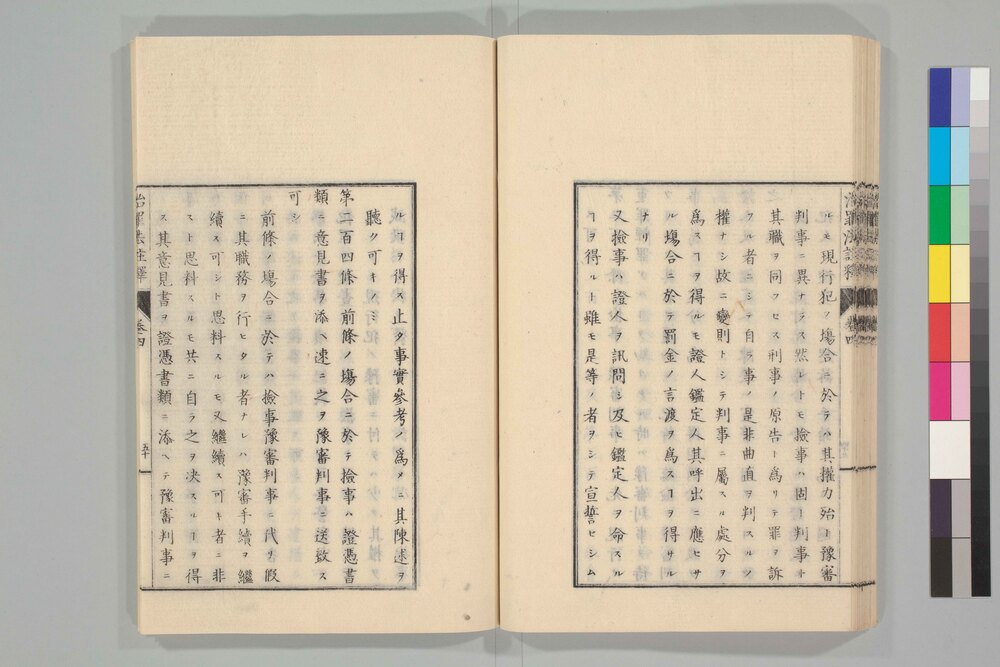 ルモ現行犯ノ塲合ニ於テハ其權力殆ト豫審
判事ニ異ナラス然レトモ撿事ハ固ト判事ト
其職ヲ同フセス刑事ノ原告ト爲リテ罪ヲ訴
フル者ニシテ自ラ事ノ是非曲直ヲ判スルノ
權ナシ故ニ變則トシテ判事ニ屬スル處分ヲ
爲スヿヲ得ルモ證人鑑定人其呼出ニ應セサ
ル塲合ニ於テ罰金ノ言渡ヲ爲スヿヲ得サル
ナリ
又撿事ハ證人ヲ訊問シ及ヒ鑑定人ヲ命スル
ヿヲ得ルト雖モ是等ノ者ヲシテ宣誓セシム
ルヿヲ得ス止タ事實參考ノ爲メニ其陳述ヲ
聽ク可キノミ
第二百四條 前條ノ塲合ニ於テ撿事ハ證憑書
類ニ意見書ヲ添ヘ速ニ之ヲ豫審判事ニ送致ス
可シ
前條ノ塲合ニ於テハ撿事豫審判事ニ代リ假
ニ其職務ヲ行ヒタル者ナレハ豫審手續ヲ繼
續ス可シト思料スルモ又繼續ス可キ者ニ非
スト思料スルモ共ニ自ラ之ヲ决スルヿヲ得
ス其意見書ヲ證憑書類ニ添ヘテ豫審判事ニ
治罪法註釋
卷四
五十